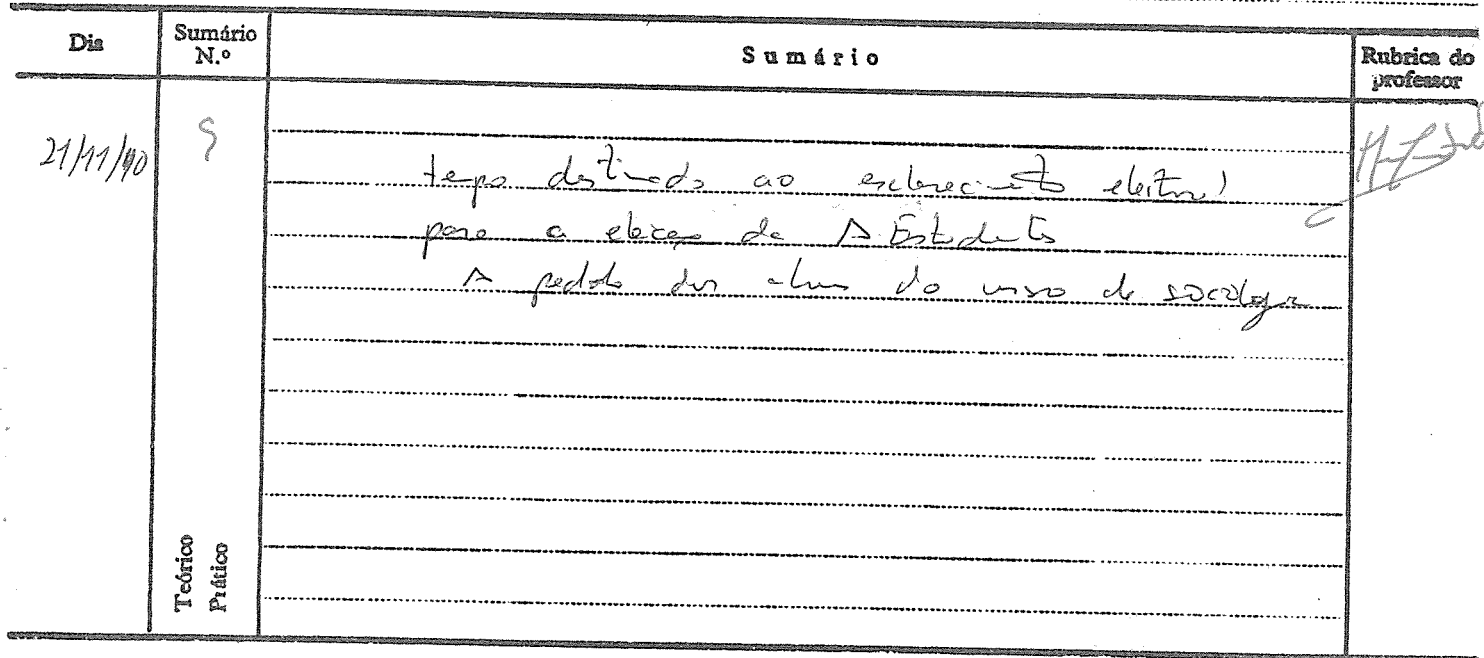 Dia
Sumário N.º
Sumário
Rubrica do professor
21/11/90
9
tempo destinado ao esclarecimento eleitoral
para a eleição da A Estudantes
A pedido dos alunos do curso de sociologia
Teórico
Prático